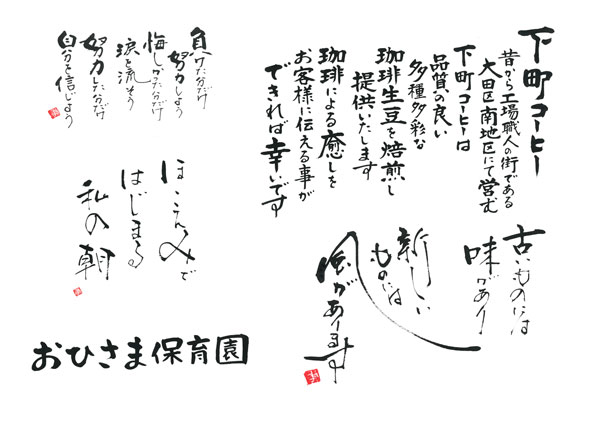 下町コーヒー
昔から工場職人の街である
大田区南地区にて営む
下町コーヒーは
品質の良い
多種多彩な
珈琲生豆を焙煎し
提供いたします
珈琲による癒しを
お客様に伝える事が
できれば幸いです
負けただけ
努力しよう
悔しかっただけ
涙を流そう
努力しただけ
自分を信じよう
ほゝえみで
はじまる
私の朝
古いものには
味があり
新しい
ものには
風があります
おひさま保育園